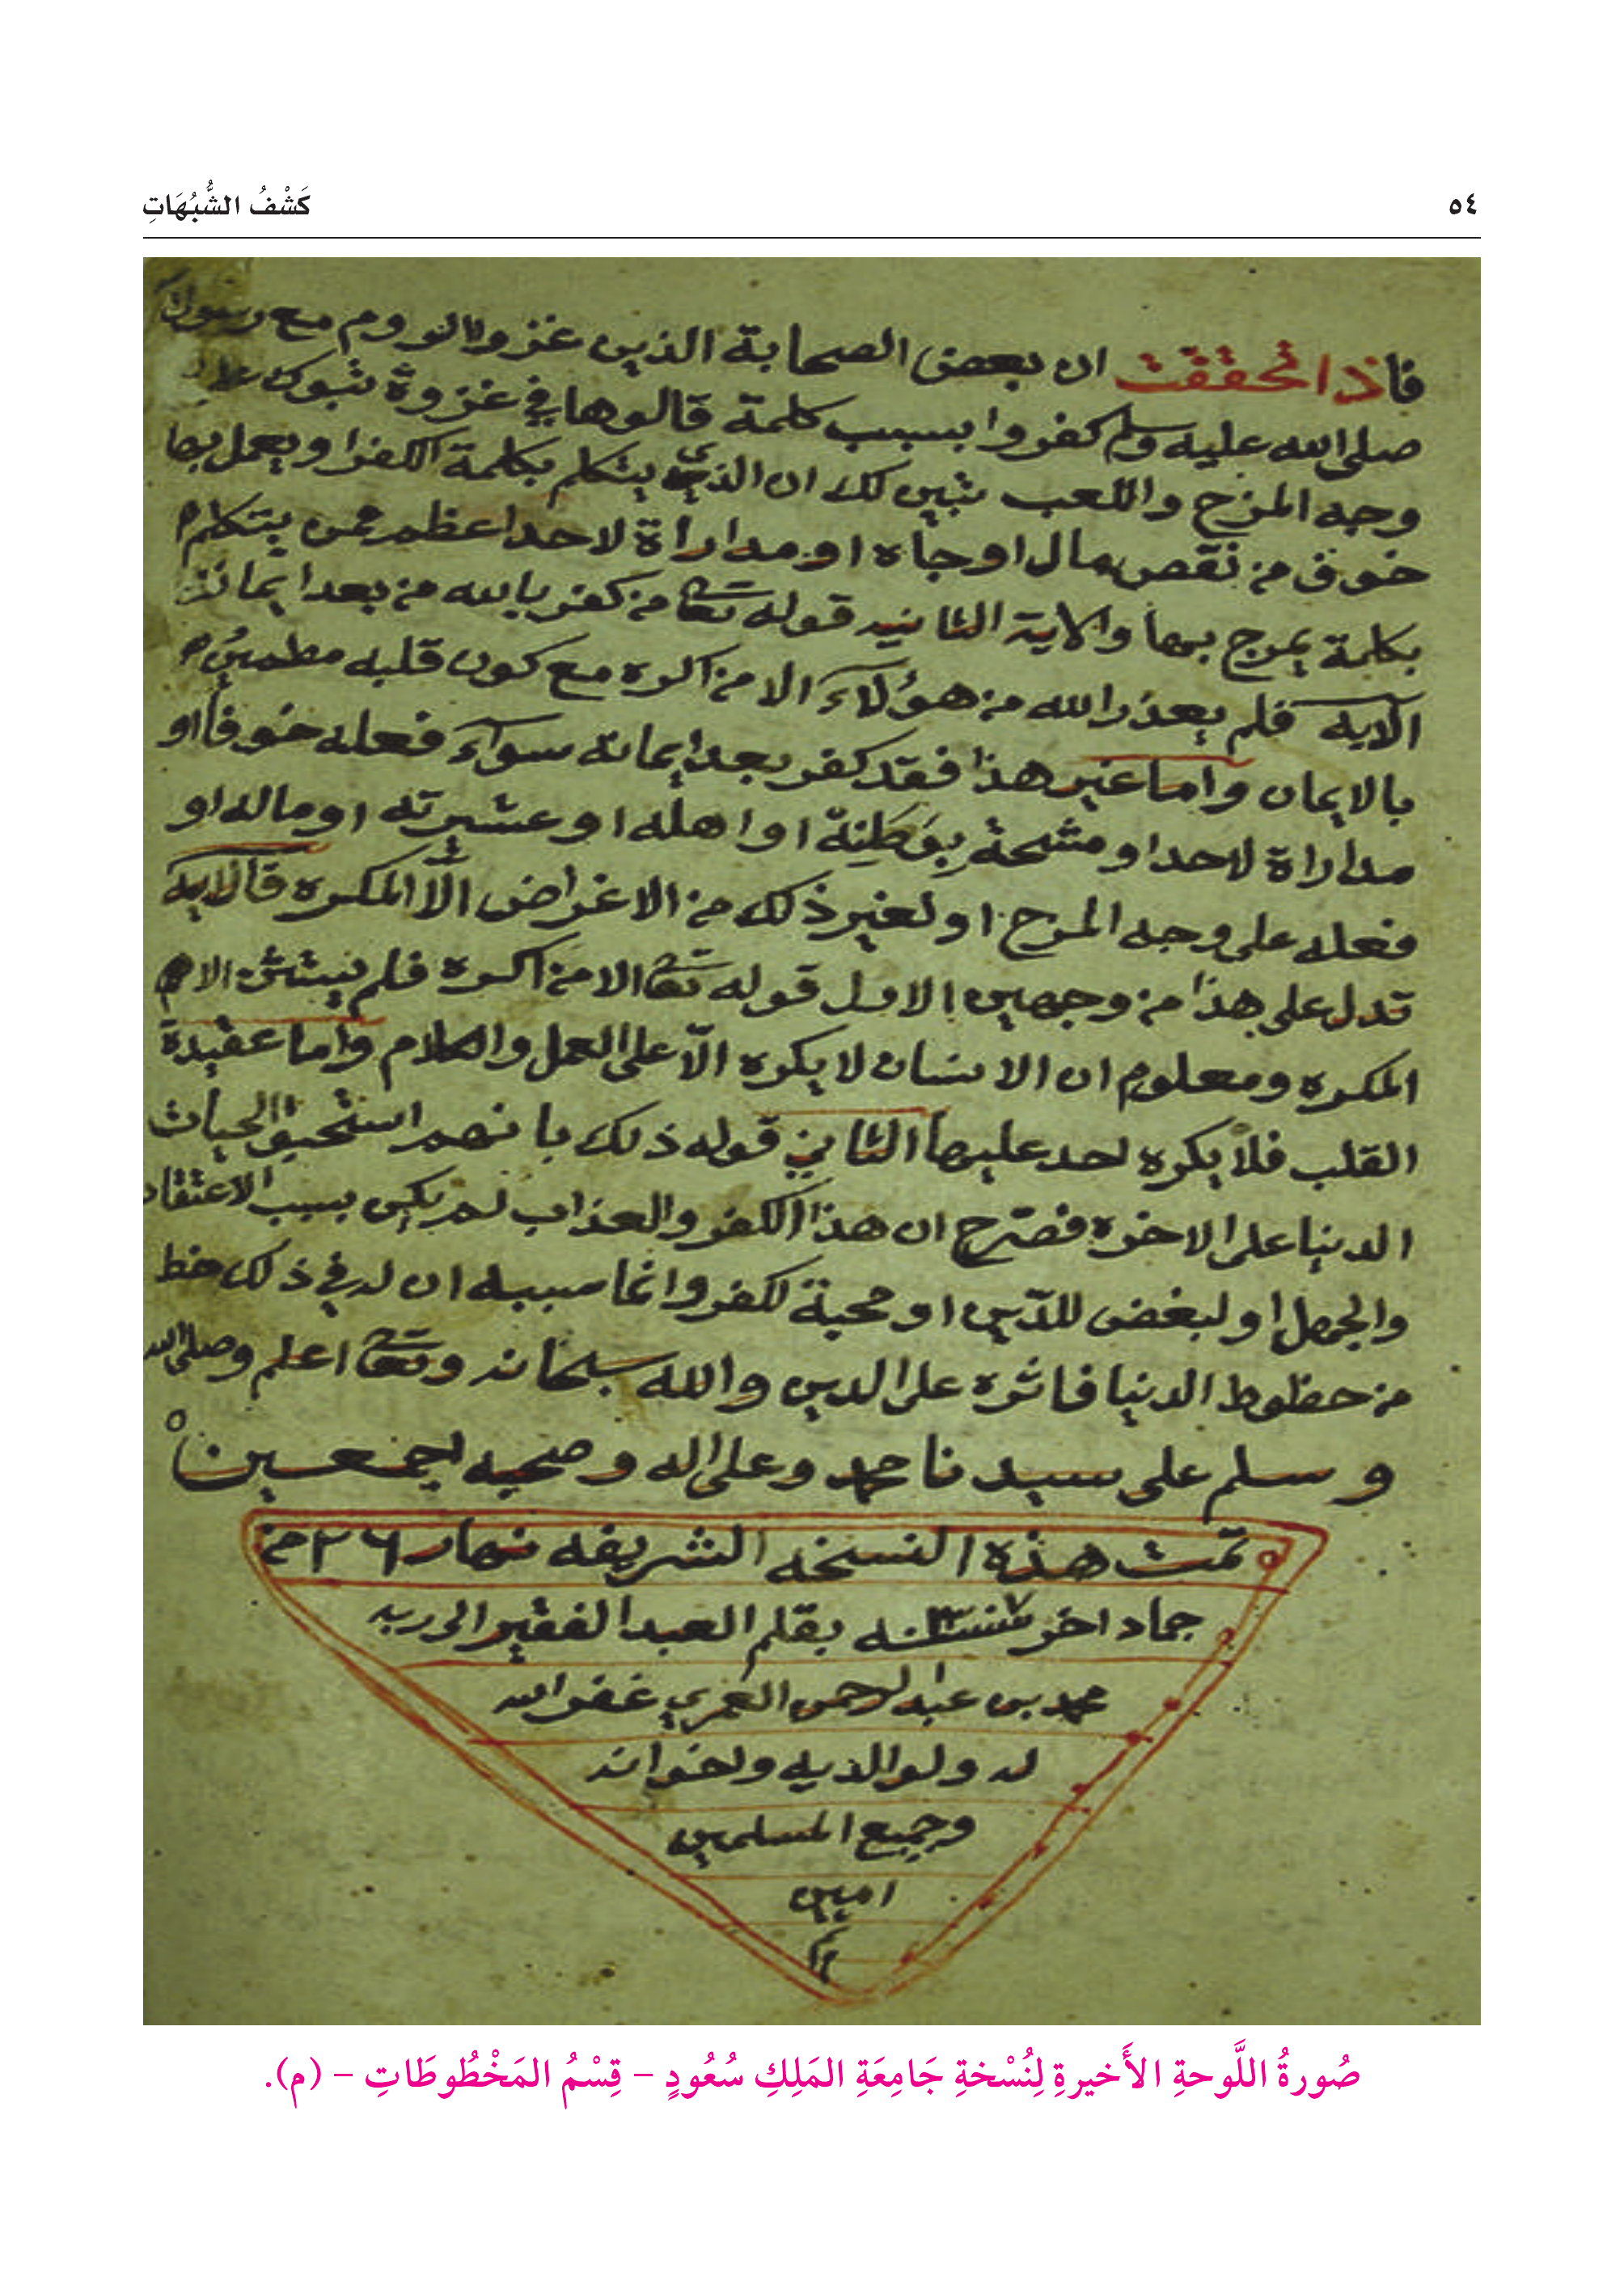 ٥٤
كَشْفُ الشُّبُهَاتِ
فاذا تحققت ان بعض الصحابة الذين غزوا الروم مع رسول
صلى الله عليه وسلم كفروا بسبب كلمة قالوها في غزوة تبوك على
وجه المزح واللعب تبين لك ان الذي يتكلم بكلمة الكفر او يعمل بها
خوف من نقص مال او جاه او مداراة لاحد اعظم ممن يتكلم
بكلمة يمزح بها والاية الثانيه قوله تعا من كفر بالله من بعد ايمانه
الايه فلم يعذر الله من هؤلاء الا من اكره مع كون قلبه مطمئن
بالايمان واما غير هذا فقد كفر بعد ايمانه سوآء فعله خوفا او
مداراة لاحد او مشحة بوطنه او اهله او عشيرته او ماله او
فعله على وجه المزح او لغير ذلك من الاغراض الّا المكره فالايه
تدل على هذا من وجهين الاول قوله تعا الا من اكره فلم يستثن الا
المكره ومعلوم ان الانسان لا يكره الّا على العمل والكلام واما عقيدة
القلب فلا يكره احد عليها الثاني قوله ذلك بانهم استحبو الحيات
الدنيا على الاخره فصرح ان هذا الكفر والعذاب لم يكن بسبب الاعتقاد
والجهل او لبغض للدين او محبة لكفر وانما سببه ان له في ذلك حظ
من حظوظ الدنيا فاثره على الدين والله سبحانه وتعا اعلم وصلى الله
وسلم على سيدنا محمد وعلى اله وصحبه اجمعين
تمت هذه النسخه الشريفه نهار ٢٦ من
جماد اخر سنه بقلم العبد الفقير الى ربه
محمد بن عبد الرحمن العمري غفر الله
له ولوالديه ولاخوانه
وجميع المسلمين
امين
م
صُورةُ اللَّوحةِ الأَخيرةِ لِنُسْخةِ جَامِعَةِ المَلِكِ سُعُودٍ – قِسْمُ المَخْطُوطَاتِ – (م).